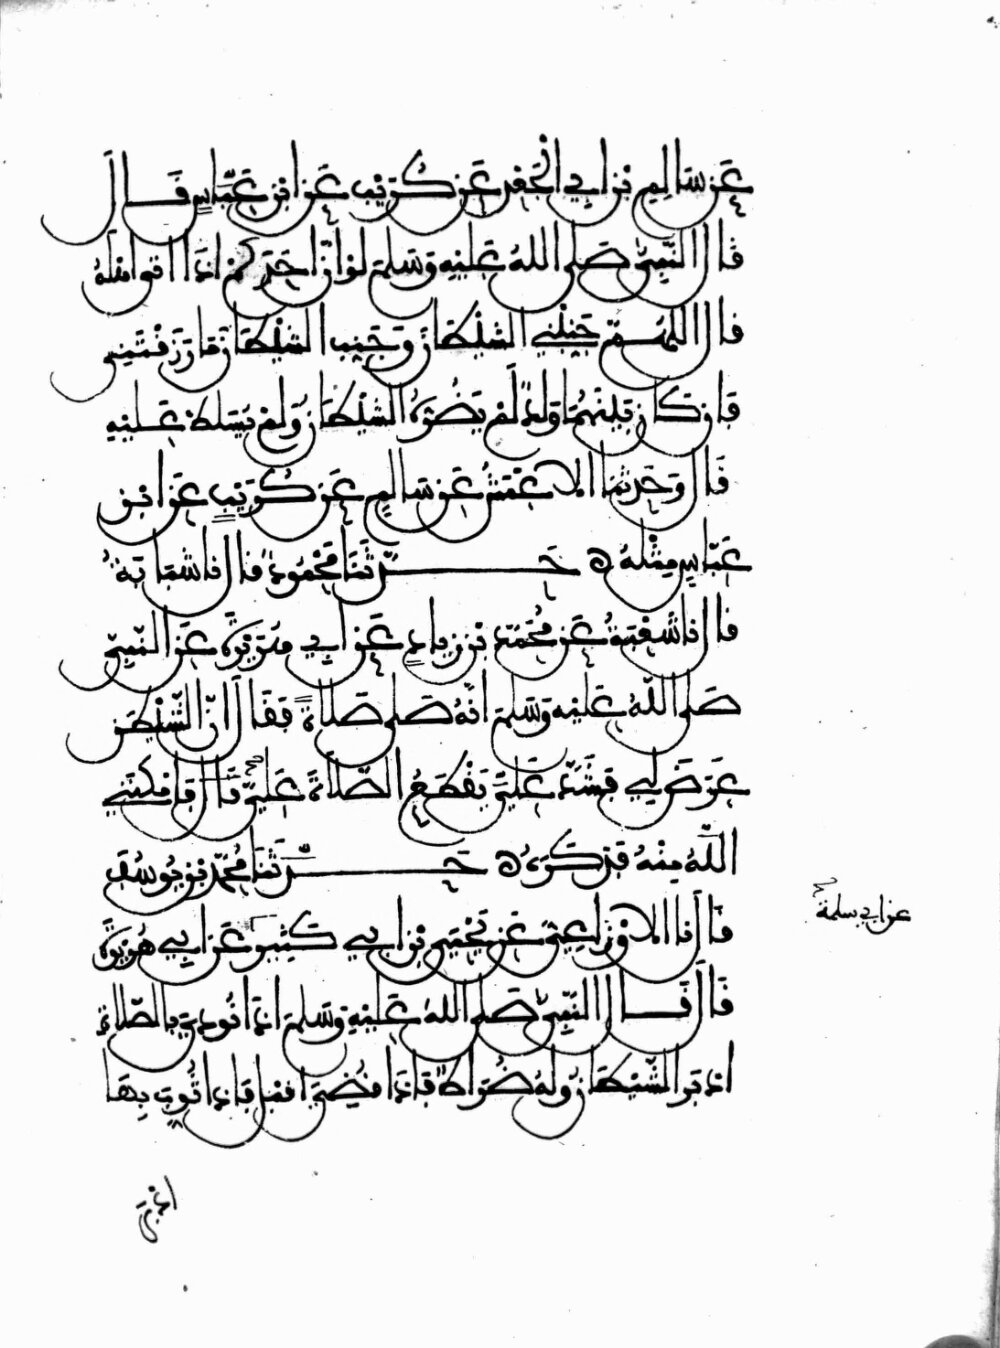 عن سالم بن ابي الجعد عن كريب عن ابن عباس قال
قال النبي صلى الله عليه وسلم لو ان احدكم اذا اتى اهله
قال اللهم جنبني الشيطان وجنب الشيطان ما رزقتني
فان كان بينهما ولد لم يضره الشيطان ولم يسلط عليه
قال وحدثنا الاعمش عن سالم عن كريب عن ابن
عباس مثله ه حدثنا محمود قال نا شبابة
قال نا شعبة عن محمد بن زياد عن ابي هريرة عن النبي
صلى الله عليه وسلم انه صلى صلاة فقال ان الشيطن
عرض لي فشد علي يقطع الصلاة علي قال فامكنني
الله منه فذكره ه حدثنا محمد بن يوسف
قال نا الاوزاعي عن يحيى بن ابي كثير عن ابي هريرة
عن ابي سلمة
قال قال النبي صلى الله عليه وسلم اذا نودي بالصلاة
ادبر الشيطان وله ضراط فاذا قضي اقبل فاذا ثوب بها
ادبر